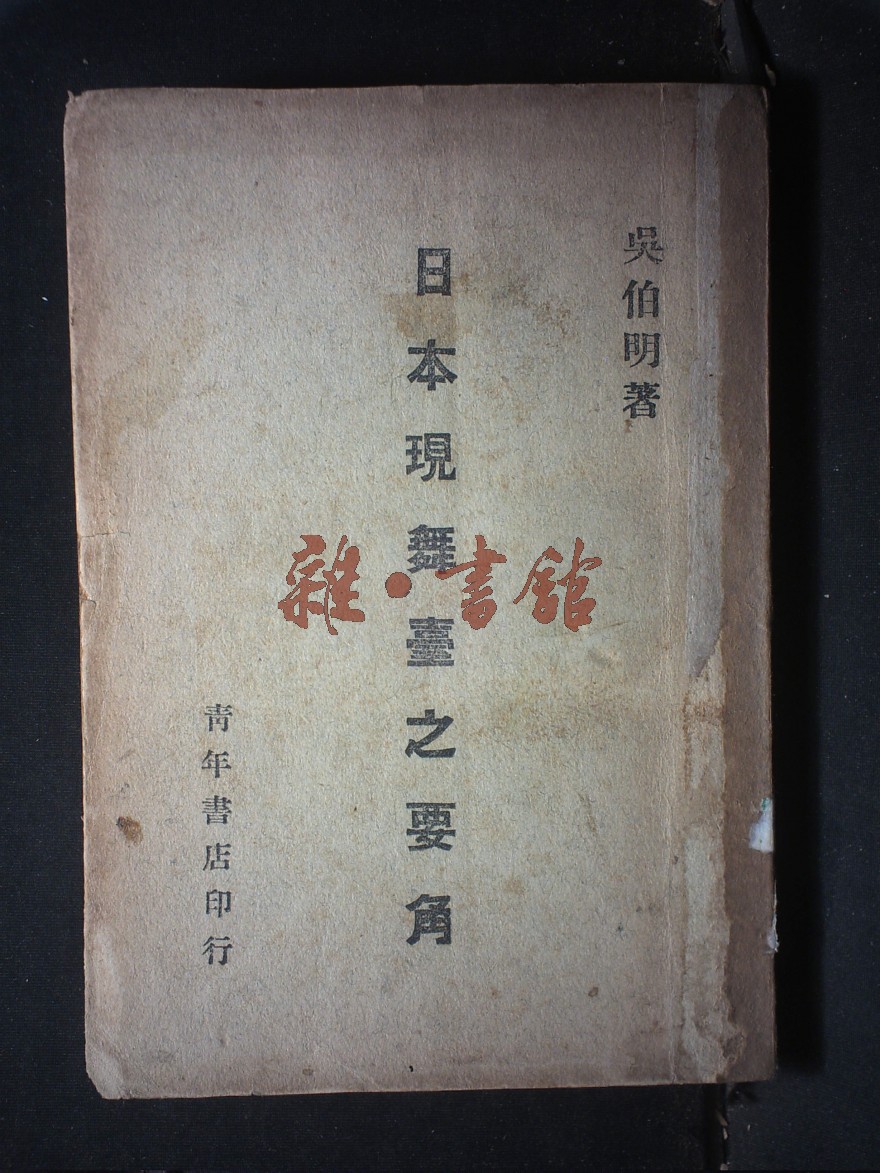 吳伯明著
日本現舞臺之要角
青年書店印行
雜·書館